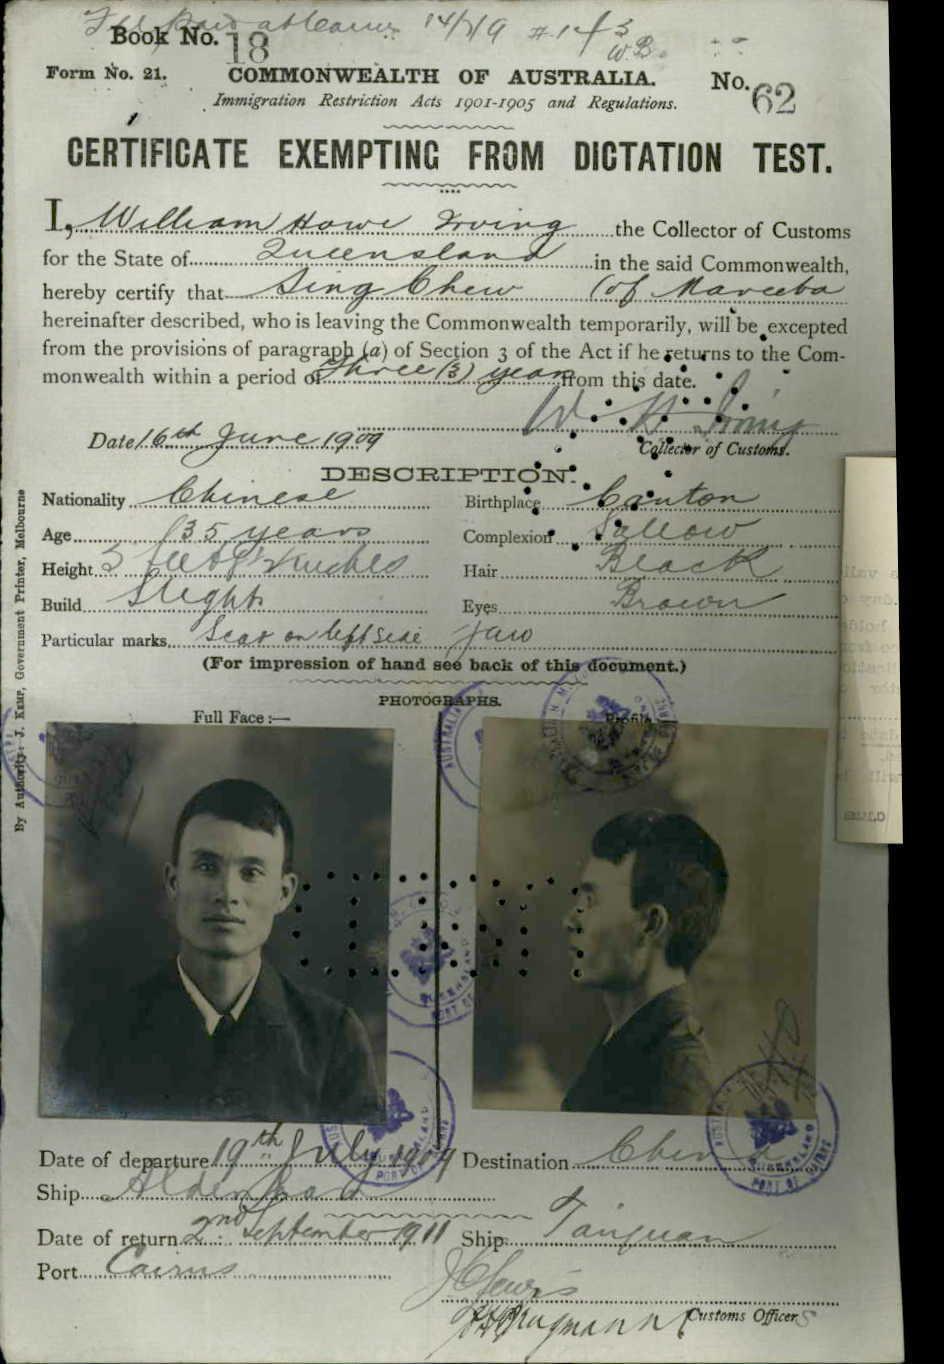 Book No. 18
Form No. 21. COMMONWEALTH OF AUSTRALIA. No. 62
Immigration Restriction Acts 1901-1905 and Regulations.
CERTIFICATE EXEMPTING FROM DICTATION TEST.
I, William Howe Irving the Collector of Customs
for the State of Queensland in the said Commonwealth,
hereby certify that Sing Chew (of Mareeba
hereinafter described, who is leaving the Commonwealth temporarily, will be excepted
from the provisions of paragraph (a) of Section 3 of the Act if he returns to the Com-
monwealth within a period of Three (3) years from this date.
W H Irving
Date 16th June 1909
Collector of Customs.
DESCRIPTION.
Nationality Chinese Birthplace Canton
Age 35 years Complexion Sallow
Height 5 feet inches Hair Black
Build Slight Eyes Brown
Particular marks Scar on left side jaw
(For impression of hand see back of this document.)
PHOTOGRAPHS.
Full Face :— Profile
By Authority: J. Kemp, Government Printer, Melbourne
Date of departure 19th July 1909 Destination China
Ship Aldenham
Date of return 2nd September 1911 Ship Taiyuan
Port Cairns
Customs Officers